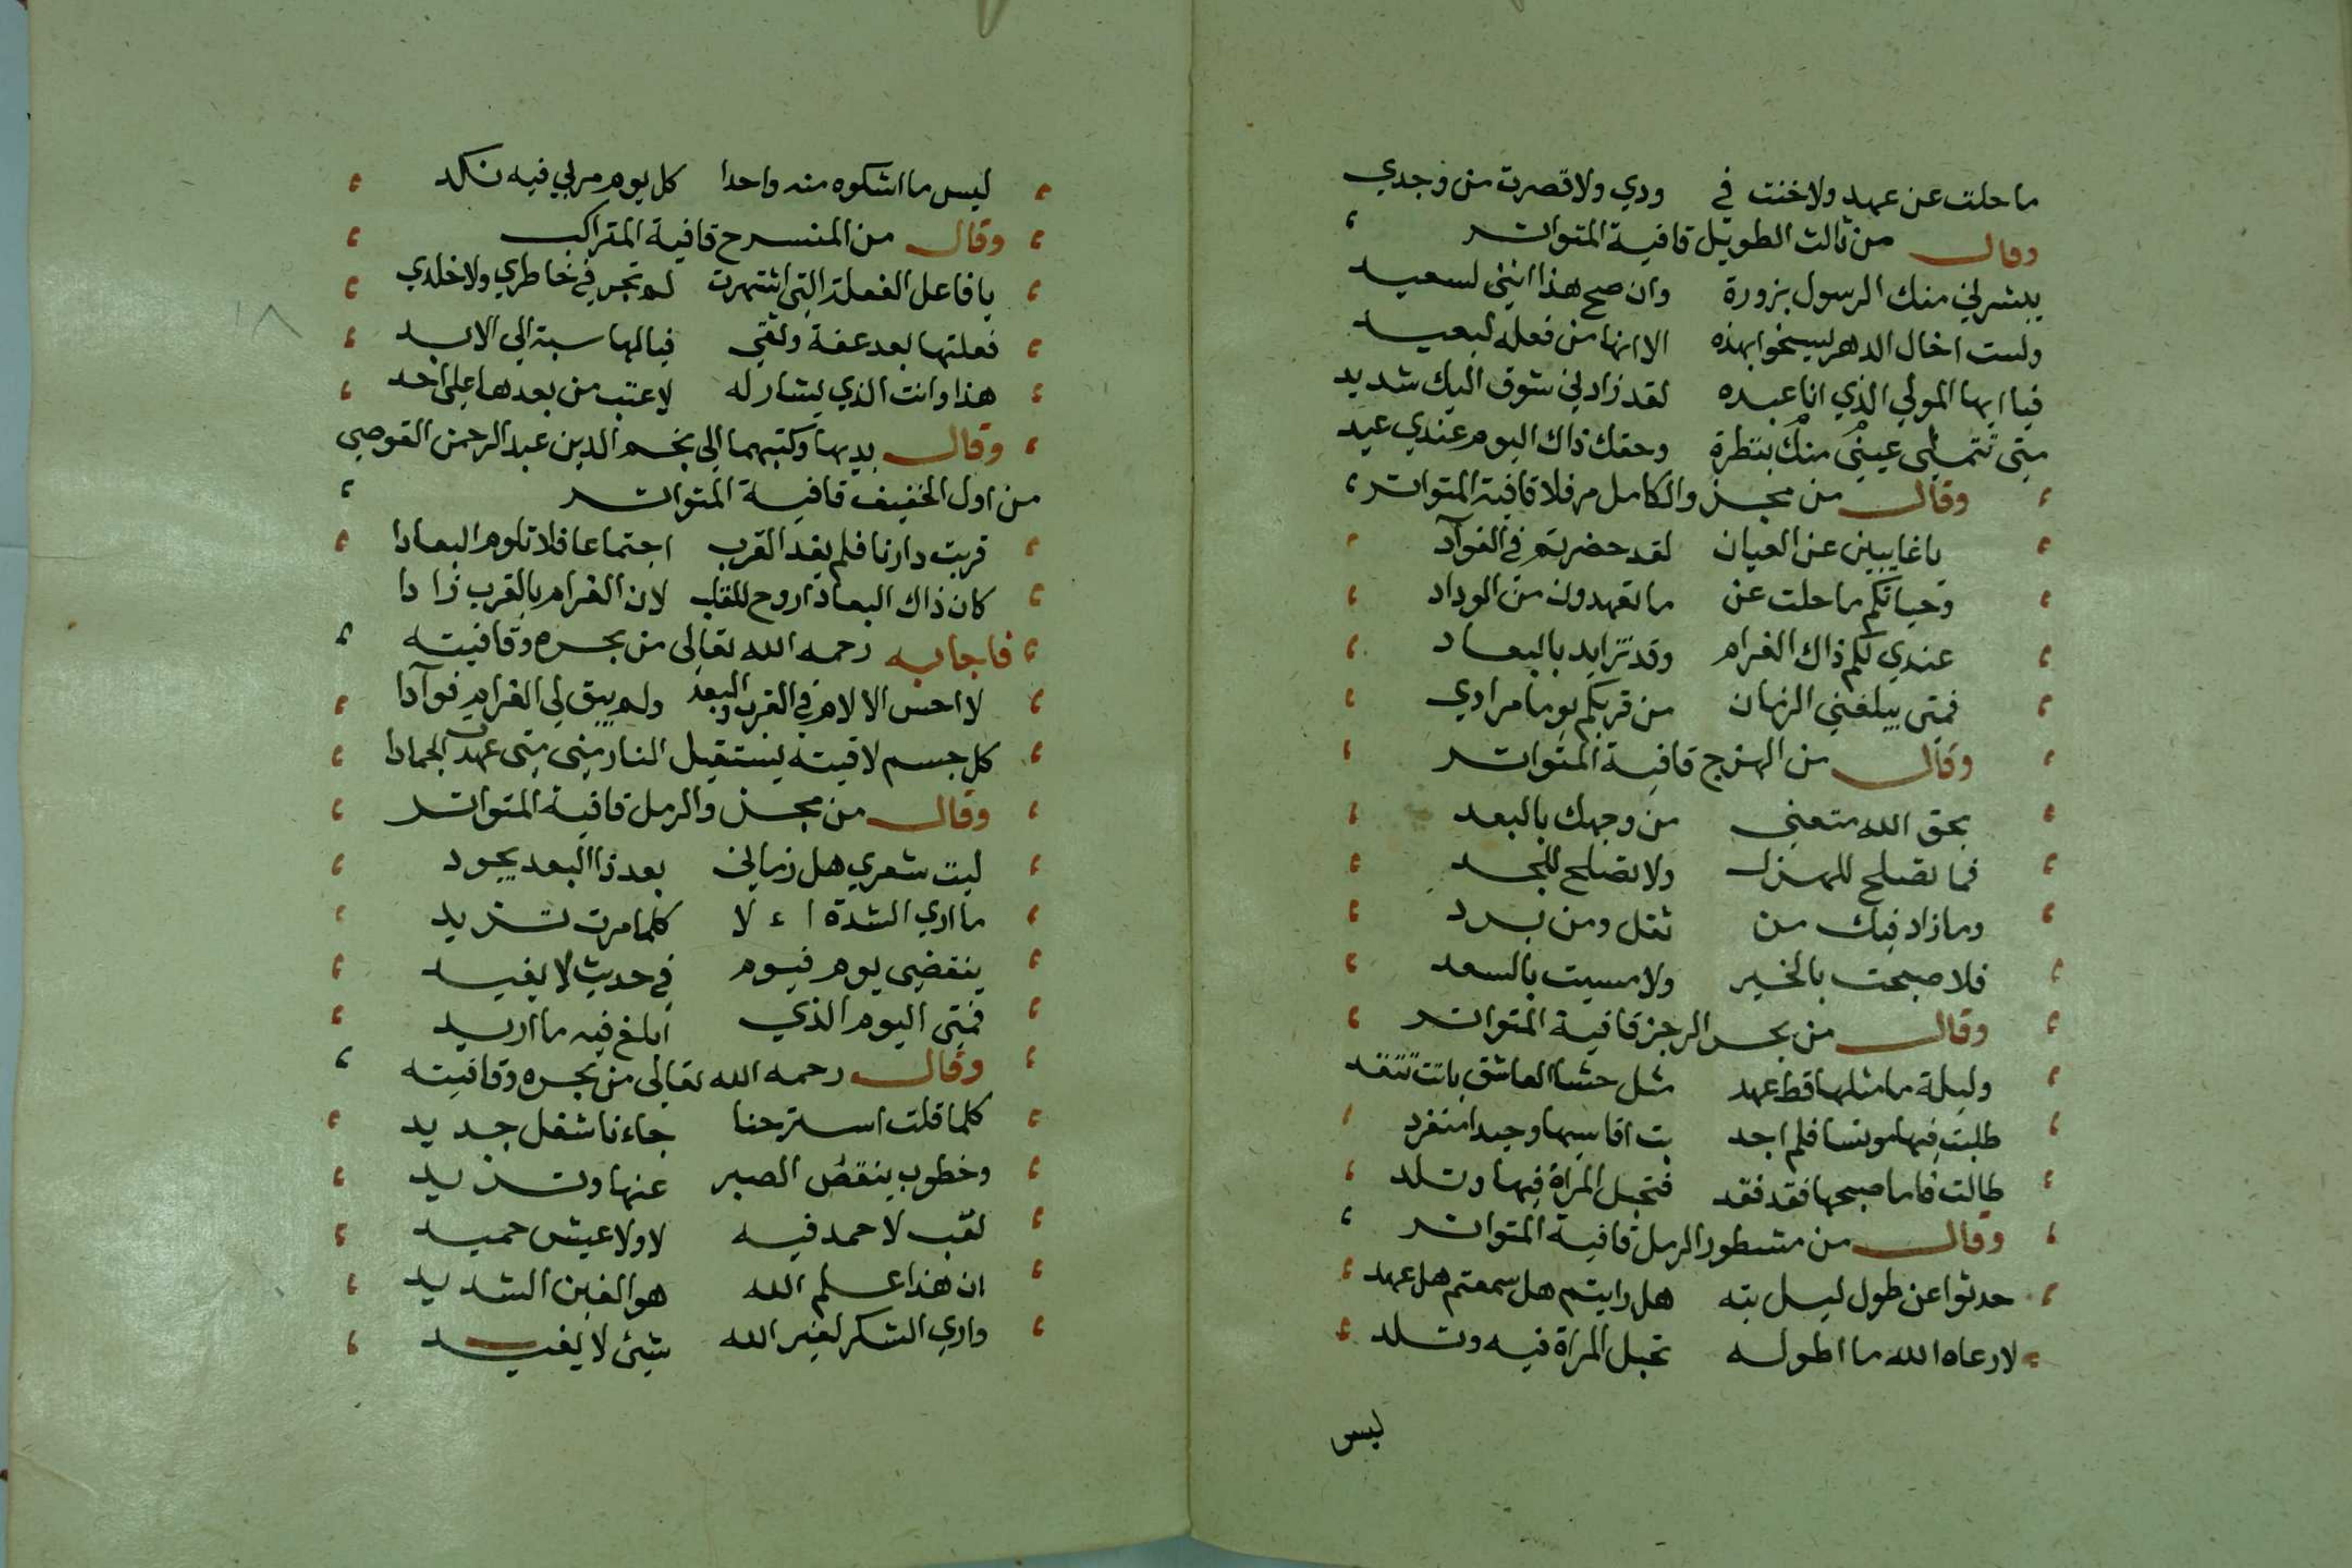 ما حلت عن عهد ولا خنت في ودي ولا قصرت من وجدي
وقال من ثالث الطويل قافية المتواتر
يبشرني منك الرسول بزورة وان صح هذا انني لسعيد
ولست اخال الدهر ليسخوا بهذه الا انها من فعله لبعيد
فيا ايها المولي الذي انا عبده لقد زاد لي شوق اليك شديد
متى تتملي عيني منك بنظرة وحقك ذاك اليوم عندي عيد
وقال من مجزو الكامل مرفلا قافية المتواتر
يا غايبين عن العيان لقد حضرتم في الفوآد
وحياتكم ما حلت عن ما تعهدون من الوداد
عندي لكم ذاك الغرام وقد تزايد بالبعاد
فمتى يبلغني الزمان من قربكم يوما مرادي
وقال من الهزج قافية المتواتر
بحق الله متعني من وجهك بالبعد
فما تصلح للهزل ولا تصلح للجد
وما زاد فيك من ثقل ومن برد
فلا صبحت بالخير ولا مسيت بالسعد
وقال من بحر الرجز قافية المتواتر
وليلة ما مثلها قط عهد مثل حشا العاشق باتت تتقد
طلبت فيها مونسا فلم اجد بت اقاسيها وحيدا منفرد
طالت فاما صبحها فقد فقد فتحبل المراة فيها وتلد
وقال من مشطور الرمل قافية المتواتر
حدثوا عن طول ليل بته هل رايتم هل سمعتم هل عهد
لا رعاه الله ما اطوله تحبل المراة فيه وتلد
ليس
ليس ما اشكوه منه واحدا كل يوم مر لي فيه نكد
وقال من المنسرح قافية المتراكب
يا فاعل الفعلة التي اشتهرت لم تجر في خاطري ولا خلدي
فعلتها بعد عفة وتقي فيا لها سبة الي الابد
هذا وانت الذي يشار له لا عتب من بعدها على احد
وقال بديها وكتبهما الى نجم الدين عبد الرحمن القوصي
من اول الخفيف قافية المتواتر
قربت دارنا فلم يفد القرب اجتماعا فلا تلوم البعادا
كان ذاك البعاد اروح للقلب لان الغرام بالقرب زادا
فاجابه رحمه الله تعالى من بحره وقافيته
لا احس الالام في القرب والبعد ولم يبق لي الغرام فوآدا
كل جسم لاقيته يستقيل النار مني متى عهدن الجمادا
وقال من مجزو الرمل قافية المتواتر
ليت شعري هل زماني بعد ذا البعد يجود
ما اري الشدة ا ء لا كلما مرت تزيد
ينقضي يوم فيوم في حديث لا يفيد
فمتى اليوم الذي ابلغ فيه ما اريد
وقال رحمه الله تعالى من بحره وقافيته
كلما قلت استرحنا جاءنا شغل جديد
وخطوب ينقص الصبر عنها وتزيد
تعب لا حمد فيه لا ولا عيش حميد
ان هذا علم الله هو الغبن الشديد
واري الشكر لغير الله شيئ لا يفيد
١٨